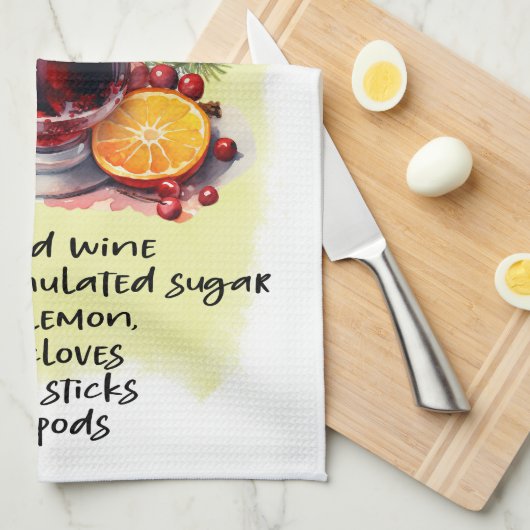 d wine
nulated sugar
lemon,
cloves
sticks
pods